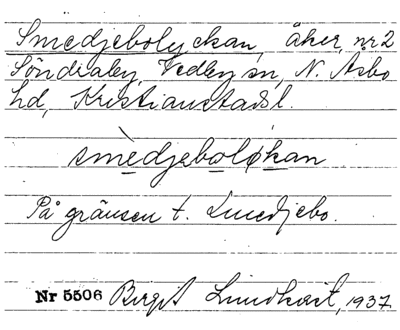 Smedjebolyckan, åker, nr 2
Söndraby, Vedby sn, N. Åsbo
hd, Kristianstads l.
smèdjebolø̨kan
På gränsen t. Smedjebo.
Nr 5506 Birgit Lindkvist, 1937